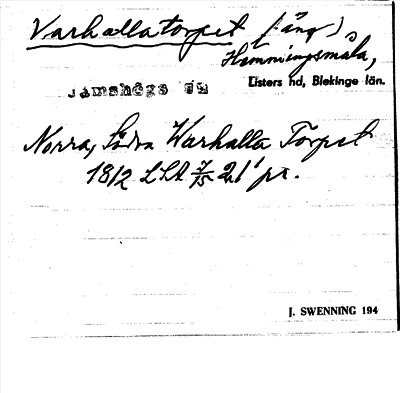 Varhallatorpet (äng),
Hemmingsmåla,
JÄMSHÖGS SN
Listers hd, Blekinge län.
Norra, Södra Warhalla Torpet
1812 LSA
J. SWENNING 194